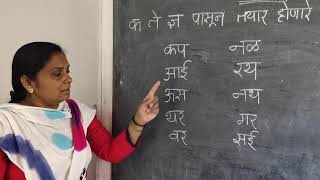 क ते ज्ञ पासून तयार होणारे
कप नळ
आई रथ
अस नथ
थर गर
वर सई